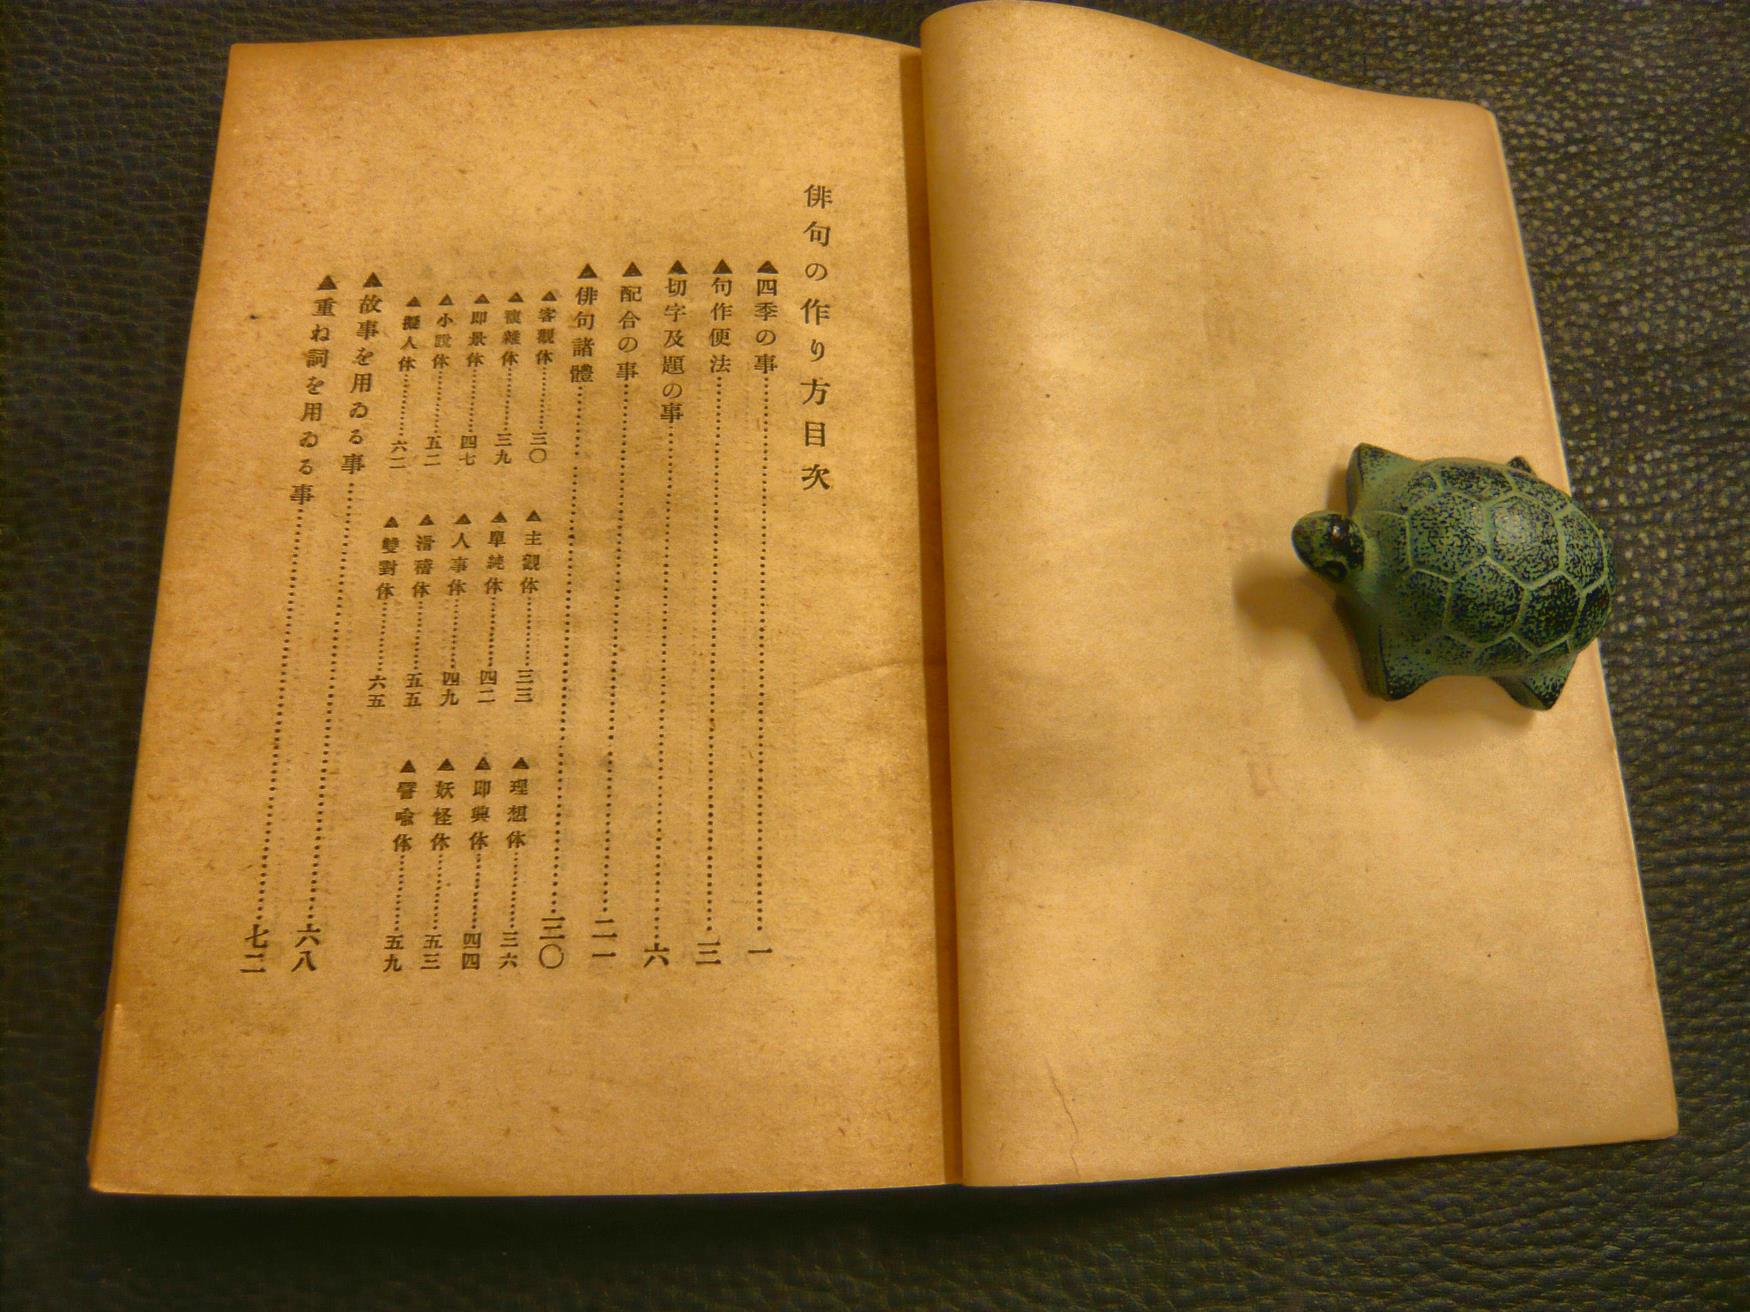 俳句の作り方目次
▲四季の事…………一
▲句作便法…………三
▲切字及題の事…………六
▲配合の事…………二一
▲俳句諸體…………三〇
▲客觀休…………三〇 ▲主觀休…………三三 ▲理想休…………三六
▲複雜休…………三九 ▲單純休…………四二 ▲即興休…………四四
▲即景休…………四七 ▲人事休…………四九 ▲妖怪休…………五三
▲小說休…………五二 ▲滑稽休…………五五 ▲譬喩休…………五九
▲擬人休…………六二 ▲雙對休…………六五
▲故事を用ゐる事…………六八
▲重ね詞を用ゐる事…………七二